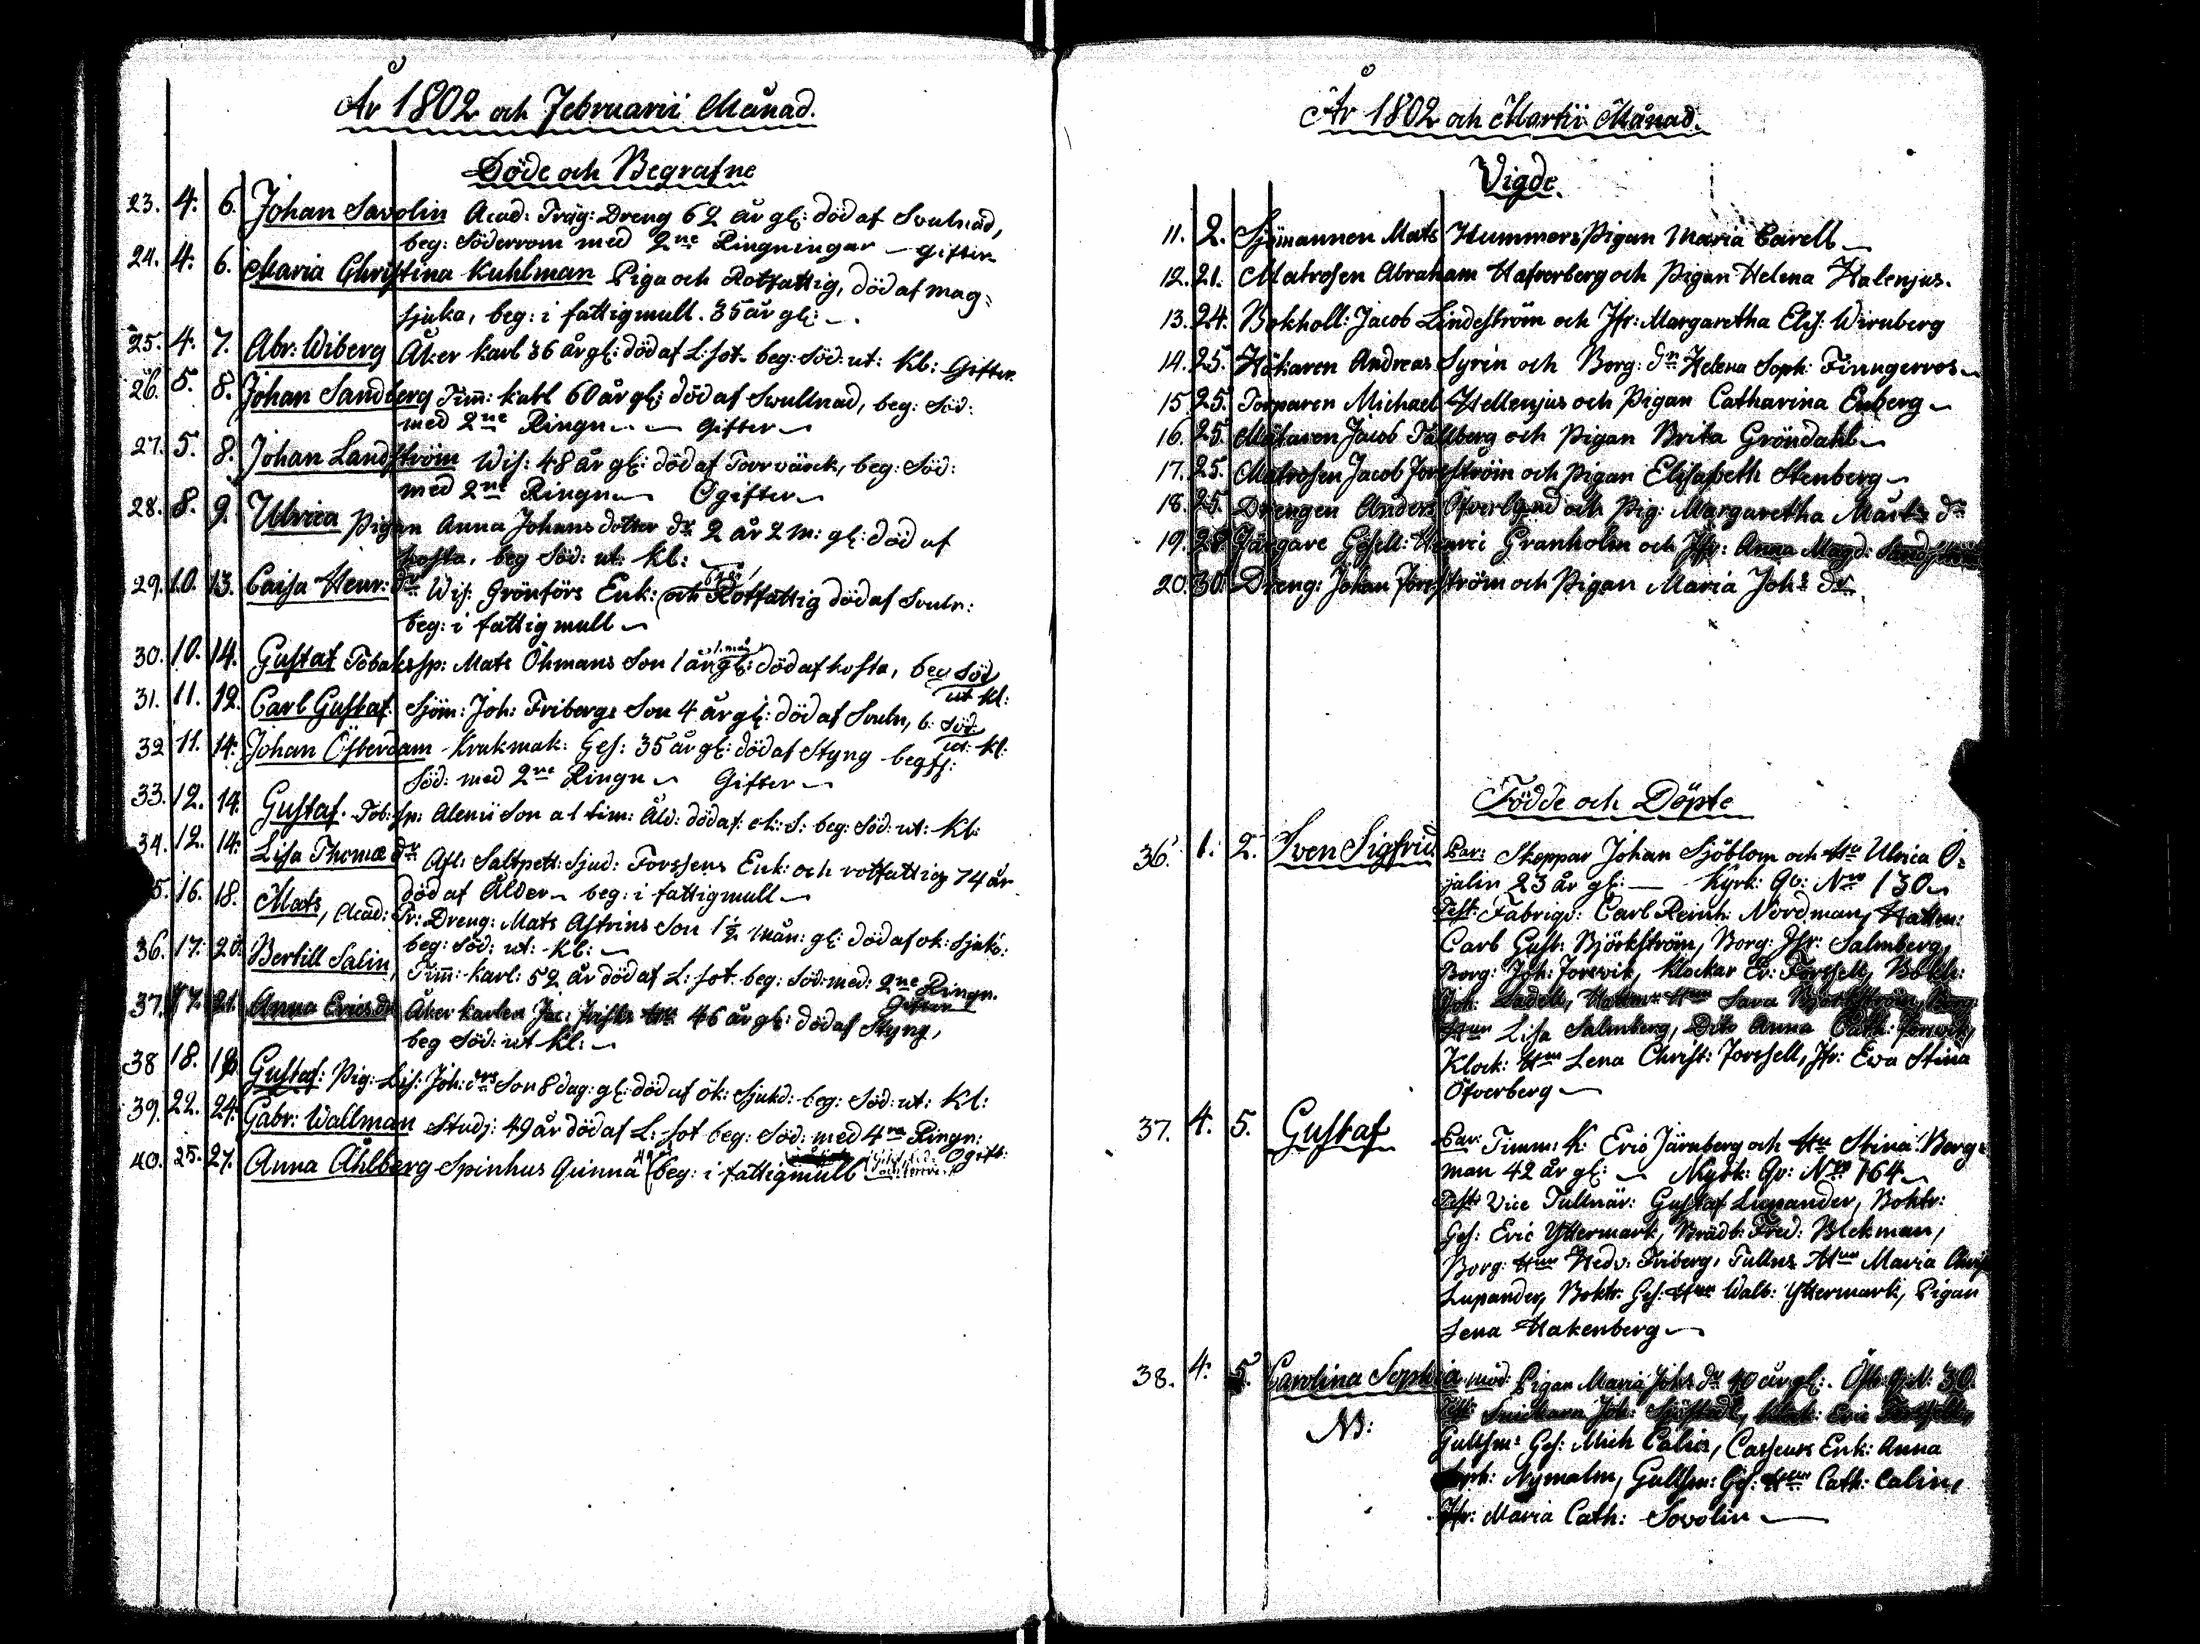 År 1802 och Februarii Månad.
Döde och Begrafne
23. 4. 6. Johan Savolin Acad: Träg: Dreng 62 år gl: död af Svulnad,
beg: Söderrom med 2ne Ringningar — Gifter
24. 4. 6. Maria Christina Kuhlman Piga och Rotfattig, död af mag-
sjuka, beg: i fattigmull. 35 år gl: —
25. 4. 7. Abr: Wiberg Åker karl 36 år gl: död af L: sot beg: Söd: ut: Kl: Gifter
26. 5. 8. Johan Sandberg Tim: karl 60 år gl: död af Swullnad, beg: Söd:
med 2ne Ringn — Gifter —
27. 5. 8. Johan Landström Wis: 48 år gl: död af Torrvärck, beg: Söd:
med 2ne Ringn — Ogifter —
28. 8. 9. Ulrica Pigan Anna Johansdotter dr 2 år 2 m: gl: död af
hosta, beg Söd: ut: Kl: —
29. 10. 13. Caisa Henr: dr Wis: Grönfors Enk: och Rotfattig död af Svuln:
beg: i fattigmull —
30. 10. 14. Gustaf Tobakssp: Mats Öhmans Son 1 år 1 mån gl: död af hosta, beg Söd
ut Kl:
31. 11. 12. Carl Gustaf Sjöm: Joh: Fribergs Son 4 år gl: död af Svuln, b: Söd:
ut: Kl:
32 11. 14. Johan Österdam Krukmak: Ges: 35 år gl: död af Styng beg
Söd: med 2ne Ringn — Gifter —
33. 12. 14. Gustaf. Tob: sp: Alenii Son a 1 tim: Åld: död af: ok: S: beg: Söd: ut: Kl:
34. 12. 14. Lisa Thomæ dr Afl: Saltpett: Sjud: Forssens Enk: och rotfattig 74 år
död af Ålder — beg: i fattigmull —
5. 16. 18. Mats, Acad: Tr: Dreng: Mats Astrins Son 1½ mån: gl: död af ok: Sjukd:
beg: Söd: ut: Kl: —
36. 17. 20. Bertill Salin, Tim: karl: 52 år död af L: sot beg: Söd: med: 2ne Ringn.
Gifter
37. 17. 21. Anna Erics dr Åker karlen Jac: Hu 46 år gl: död af Styng,
beg Söd: ut Kl: —
38 18. Gustaf: Pig: Lis: Joh: drs Son 8 dag: gl: död af ok: Sjukd: beg: Söd: ut: Kl:
39. 22. 24. Gabr: Wallman Studj: 49 år död af L: sot beg: Söd: med 4ra Ringn:
Ogift:
40. 25. 27. Anna Åhlberg Spinhus Quinna beg: i fattigmull
År 1802 och Martii Månad.
Vigde.
11. 2. Sjömannen Mats Hummers Pigan Maria Carell —
12. 21. Matrosen Abraham Hafverberg och Pigan Helena Halenjus.
13. 24. Bokholl: Jacob Lindeström och Jfr: Margaretha Elis: Wirnberg
14. 25. Hökaren Andreas Syrén och Borg: dr Helena Soph: Finngervos —
15 25. Torparen Michael Hellenjus och Pigan Catharina Enberg —
16. 25. Mätaren Jacob Tallberg och Pigan Brita Gröndahl —
17. 25. Matrosen Jacob Forsström och Pigan Elisabeth Stenberg —
18. 25. Drengen Anders Öfverlund och Pig: Margaretha Märts dr
19. Färgare Gesell: Henric Granholm och Jfr: Anna Magd:
20. 30. Dreng: Johan Forsström och Pigan Maria Johs dr.
Födde och Döpte
36. 1. 2. Sven Sigfrid Par: Skeppar Johan Sjöblom och Hu Ulrica O-
jalin 23 år gl: — Kyrk: Qv: Nro 130 —
Test: Fabriqv: Carl Reinh: Nordman, Hattm:
Carl Gust: Björkström, Borg: Jfr: Salmberg,
Borg: Joh: Forsvik, Klockar Er: Forssell, Bokh:
Joh: Ladell, Hattm: Hun Sara Björkström, Borg:
Hun Lisa Salmberg, Dito Anna Cath: Forsvik,
Klock: Hun Lena Christ: Forssell, Jfr: Eva Stina
Öfverberg —
37. 4. 5. Gustaf Par: Timm: K: Eric Järnberg och Hu Stina Berg-
man 42 år gl: — Kyrk: Qv: Nro 164 —
Test: Vice Tullnär: Gustaf Lupander, Boktr:
Ges: Eric Yttermark, Brädb: Fred: Beckman,
Borg: Hun Hedv: Friberg, Tullns Hun Maria
Lupander, Boktr: Ges: Hun Walb: Yttermark, Pigan
Lena Hakenberg —
38. 4. 5. Carolina Sophia mod: Pigan Maria Johs dr 40 år gl: Öst: Q: N: 30.
NB: Test: Snickaren Joh: Sjöstedt, Klock: Eric Forssell,
Gullsm: Ges: Mich Calin, Casseurs Enk: Anna
Soph: Nymalm, Gullsm: Ges: Hun Cath: Calin,
Jfr: Maria Cath: Sovolin —